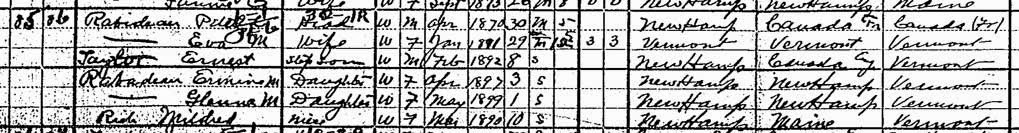 Wife W F Sept 1873 26 M 8 0 0 New Hamp New Hamp Maine
85 86 Rabideau Head W M Apr 1870 30 M 5 New Hamp Canada Fr Canada (Fr)
—— Eva M Wife W F Jan 1881 29 M 5 3 3 Vermont Vermont Vermont
Taylor Ernest Stepson W M Feb 1892 8 S New Hamp Canada Vermont
Rabideau Ermine M Daughter W F Apr 1897 3 S New Hamp New Hamp Vermont
—— Glenna M Daughter W F May 1899 1 S New Hamp New Hamp Vermont
Rich Mildred niece W F 1890 10 S New Hamp Maine Vermont